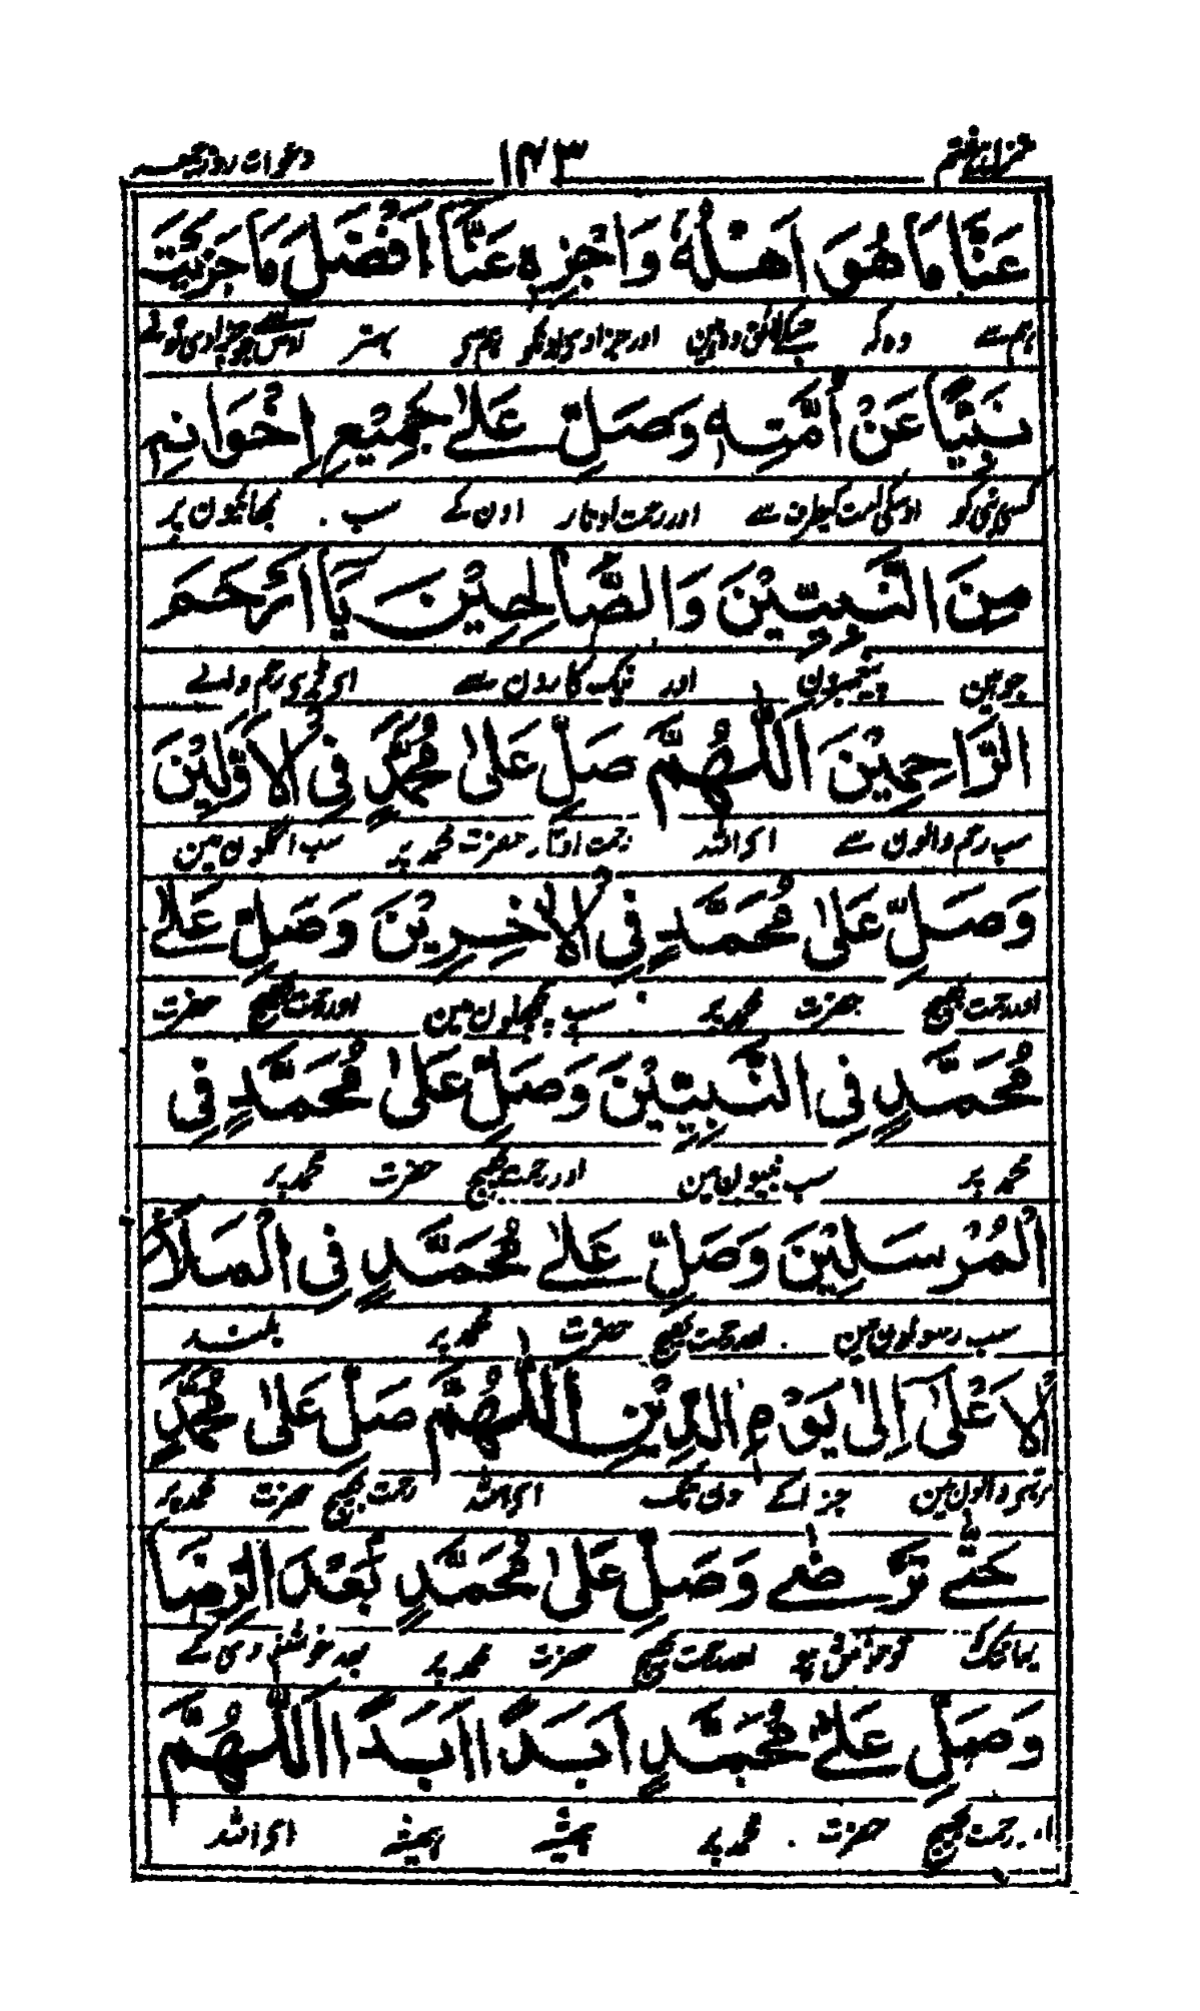 ۱۴۳ دعوات روز جمعه
عَنَّا مَا هُوَ اَهْلُهٗ وَاجْزِهٖ عَنَّا اَفْضَلَ مَا جَزَيْتَ
ہم سے وہ کہ اور جزا دی ہم سے بہتر
نَبِيًّا عَنْ اُمَّتِهٖ وَصَلِّ عَلٰى جَمِيْعِ اِخْوَانِهٖ
کسی نبی کو اوسکی امت کیطرف سے اور رحمت اوتار اون کے سب بھائیون پر
مِنَ النَّبِيّٖنَ وَالصَّالِحِيْنَ يَا اَرْحَمَ
جو ہین پیغمبرون اور نیک کارون سے ای بڑی رحم والے
الرَّاحِمِيْنَ اَللّٰهُمَّ صَلِّ عَلٰى مُحَمَّدٍ فِى الْاَوَّلِيْنَ
سب رحم والون سے ای اللہ رحمت اوتار حضرت محمد پر سب اگلون مین
وَصَلِّ عَلٰى مُحَمَّدٍ فِى الْاٰخِرِيْنَ وَصَلِّ عَلٰى
اور رحمت بھیج حضرت محمد پر سب پچھلون مین اور رحمت بھیج حضرت
مُحَمَّدٍ فِى النَّبِيّٖيْنَ وَصَلِّ عَلٰى مُحَمَّدٍ فِى
محمد پر سب نبیون مین اور رحمت بھیج حضرت محمد پر
الْمُرْسَلِيْنَ وَصَلِّ عَلٰى مُحَمَّدٍ فِى الْمَلَاِ
سب رسولون مین اور رحمت بھیج حضرت محمد پر بلند
الْاَعْلٰى اِلٰى يَوْمِ الدِّيْنِ اَللّٰهُمَّ صَلِّ عَلٰى مُحَمَّدٍ
والون مین جزا کے دن تک ای اللہ رحمت بھیج حضرت محمد پر
حَتّٰى تَرْضٰى وَصَلِّ عَلٰى مُحَمَّدٍ بَعْدَ الرِّضَا
یہانتک کہ تو خوش ہو اور رحمت بھیج حضرت محمد پر بعد خوشنودی کے
وَصَلِّ عَلٰى مُحَمَّدٍ اَبَدًا اَبَدًا اَللّٰهُمَّ
رحمت بھیج حضرت محمد پر ہمیشہ ہمیشہ ای اللہ